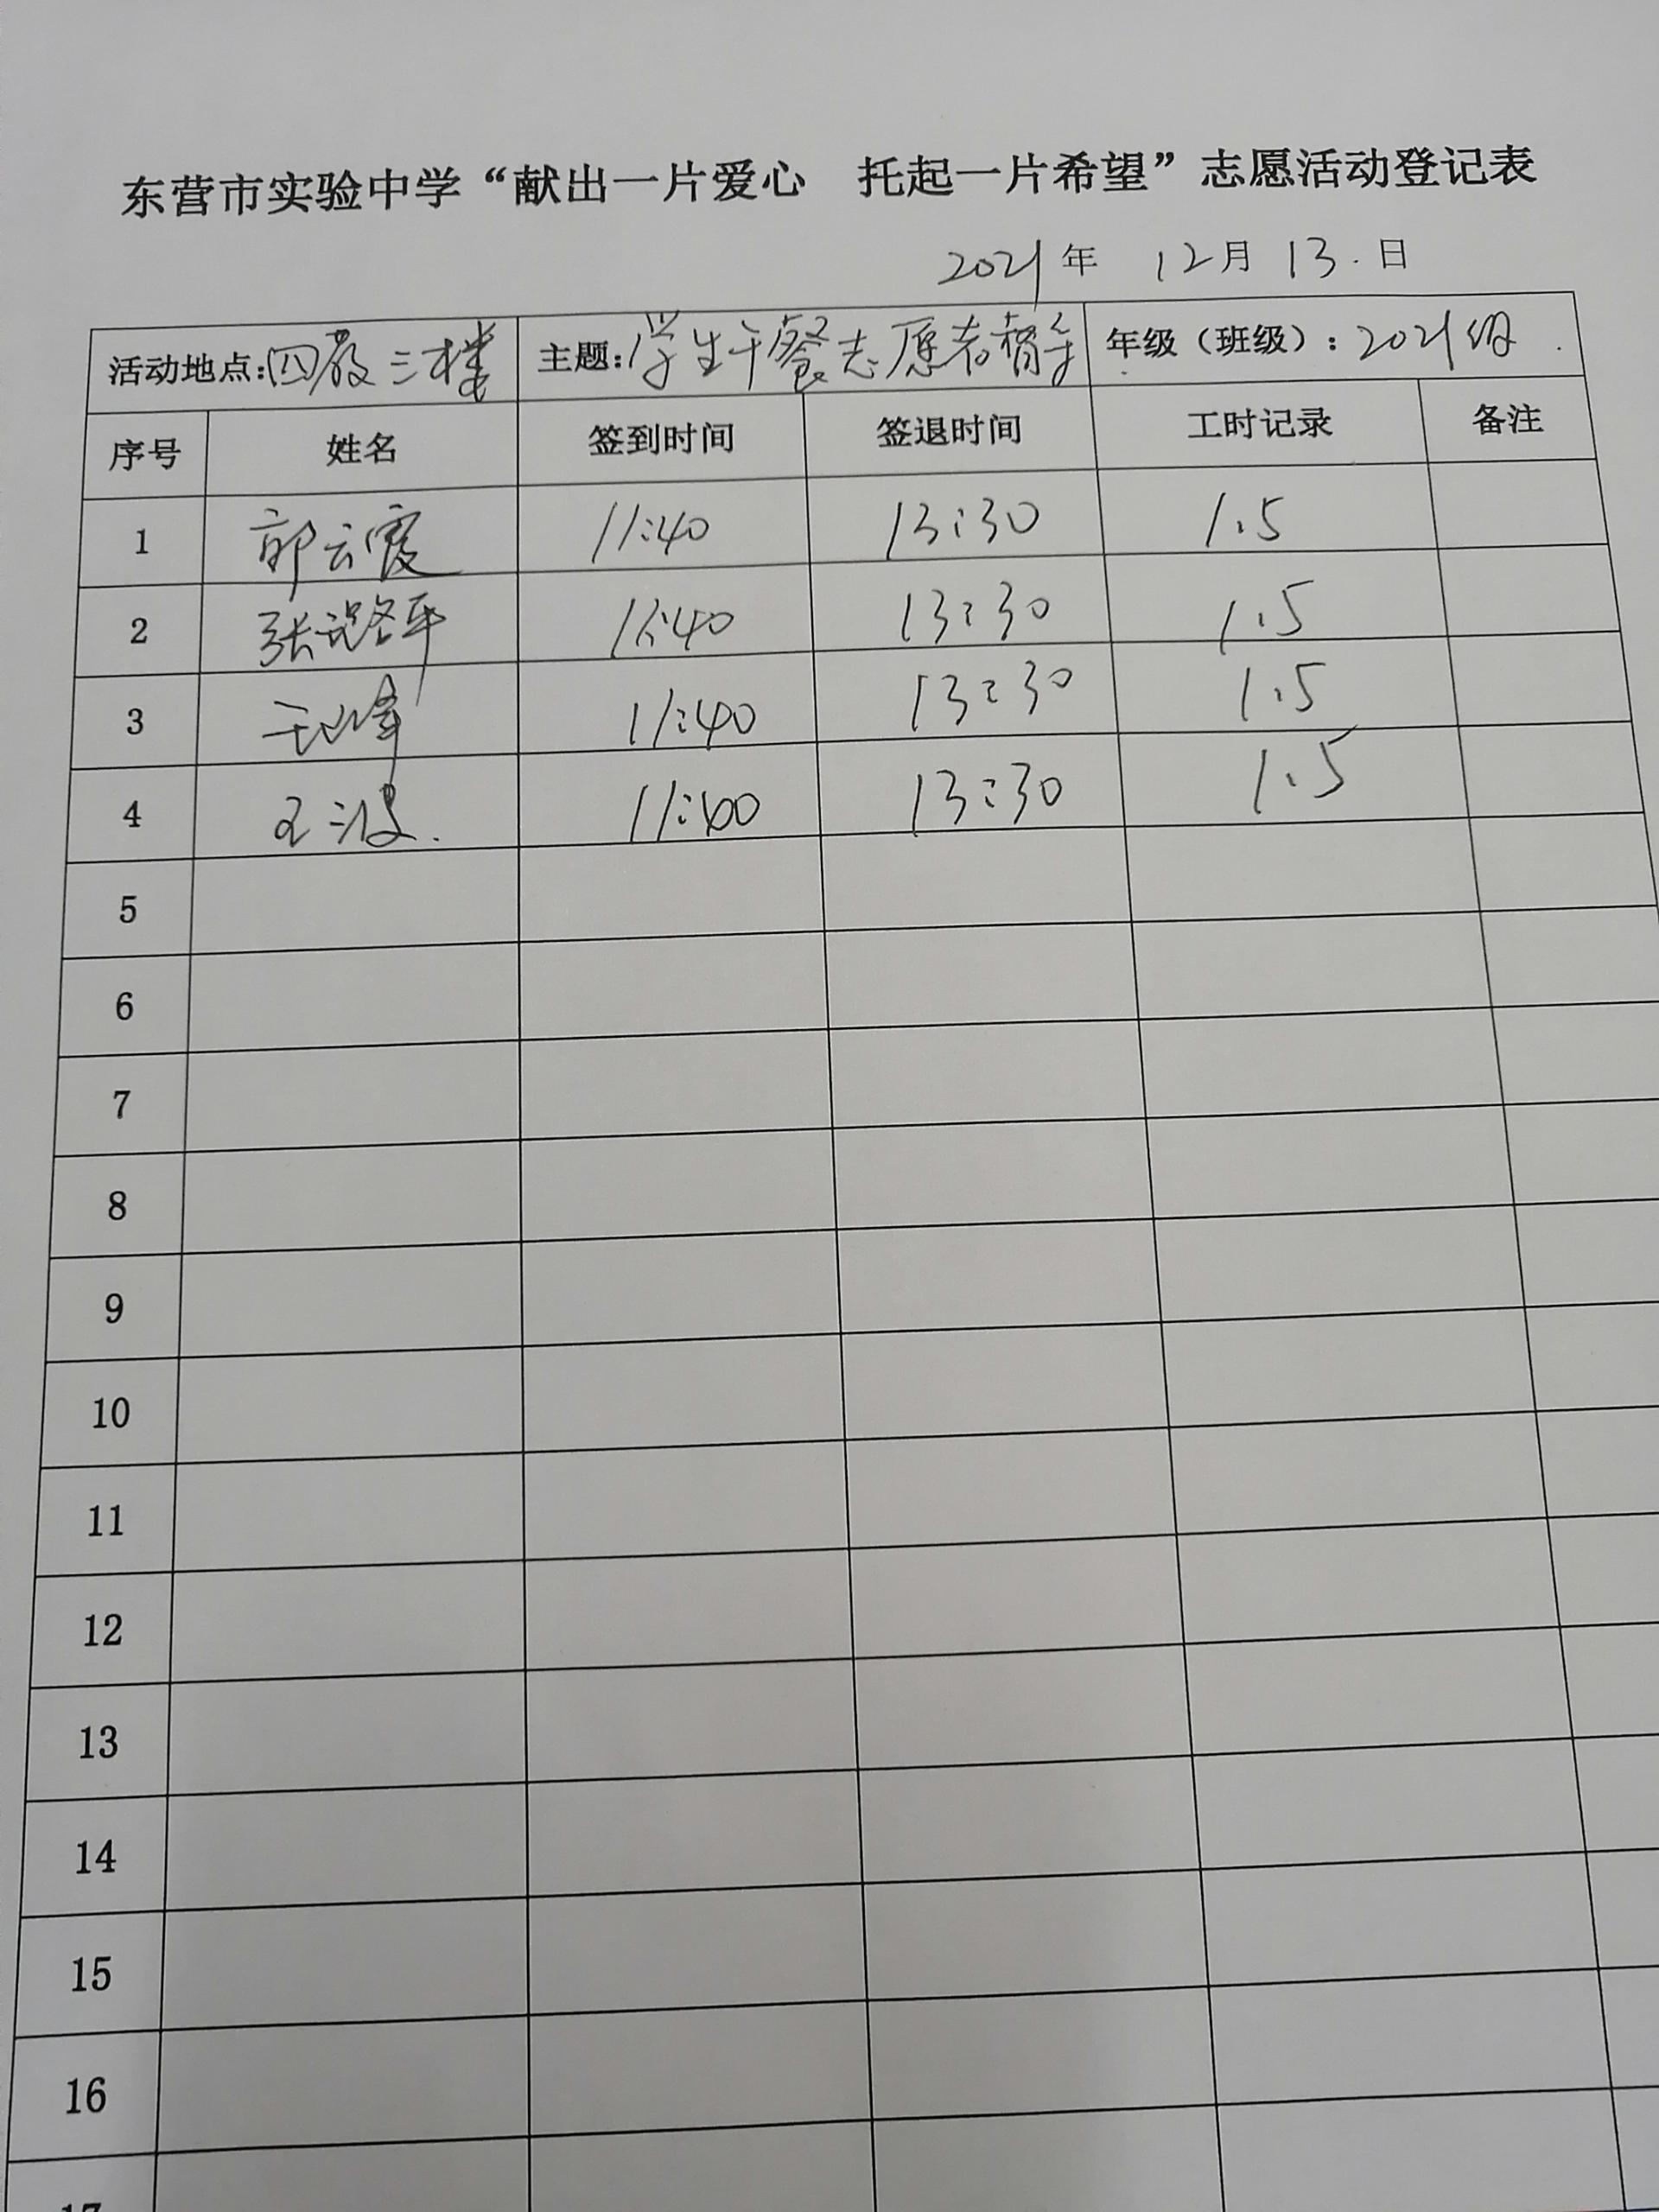 东营市实验中学“献出一片爱心 托起一片希望”志愿活动登记表
2021年 12月 13.日
活动地点:四教三楼 主题:学生午餐志愿者督导 年级（班级）:2021级.
序号 姓名 签到时间 签退时间 工时记录 备注
1 郭云霞 11:40 13:30 1.5
2 张 11:40 13:30 1.5
3 峰 11:40 13:30 1.5
4 王波. 11:40 13:30 1.5
5
6
7
8
9
10
11
12
13
14
15
16
17